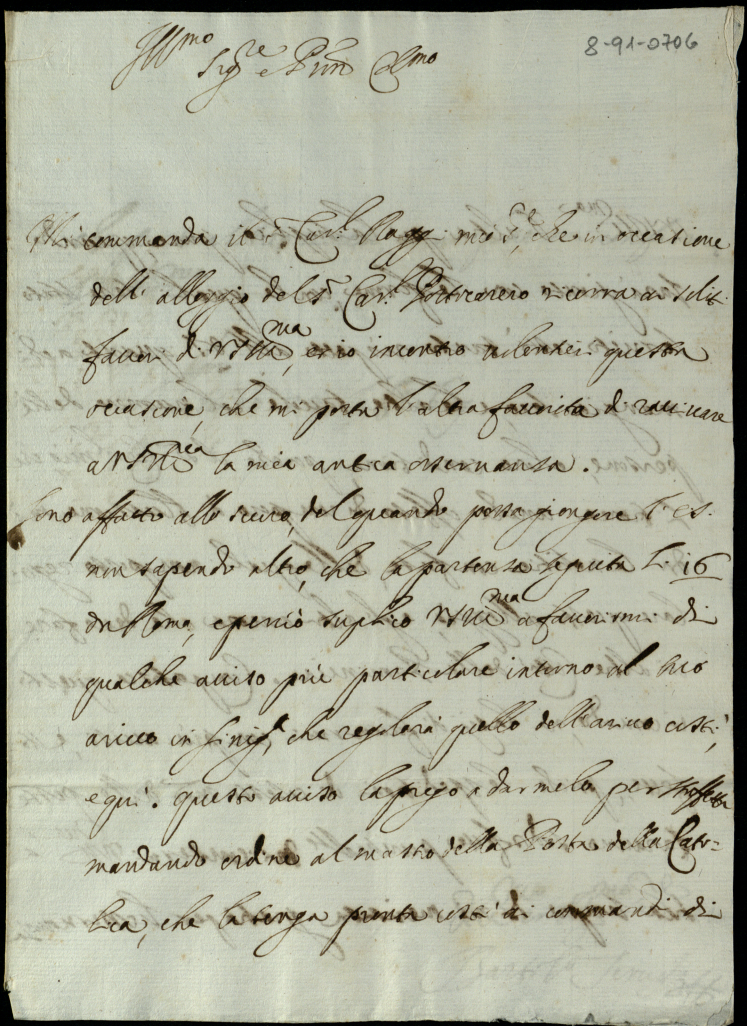 8-91-0706
Ill.mo
Sig.re e Pñn Col.mo
Mi commanda il s.r Car.l Raggi mio S.re, che in occasione
dell' alloggio del s.r Car.l Portocarero ricorra ai soliti
favori di VS Ill.ma, et io incontro volentieri questa
occasione, che mi porta l'altra favorita di ravivare
a VS Ill.ma la mia antica osservanza.
Sono affatto allo scuro, del quando possa giongere l'
non sapendo altro, che la partenza seguita li 16
da Roma, e perciò suplico VS Ill.ma a favorirmi di
qualche aviso più particolare intorno al suo
arivo in Sinig.a, che regolerà quello dell'arivo costì,
e quì. questo aviso la prego a darmelo per staffetta
mandando ordine al mastro della Posta della Cato-
lica, che la tenga pronta costì ai commandi di